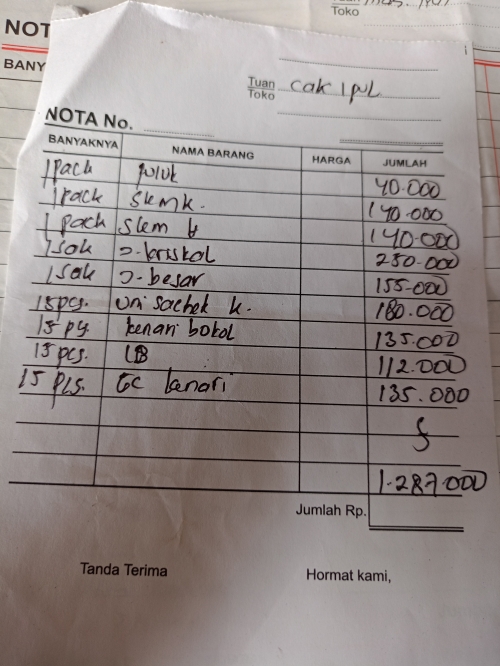 NOT
BANY
Toko
Tuan
Toko
cak Ipul
NOTA No.
BANYAKNYA NAMA BARANG HARGA JUMLAH
1 pack puluk 40.000
1 pack Skm k. 140.000
1 pack Skm b 140.000
1 sak J-kriskal 250.000
1 sak J-besar 155.000
15 pcs. uri sachek k. 180.000
15 pcs. kenari bokol 135.000
15 pcs. LB 112.000
15 pcs. GC kenari 135.000
1.287.000
Jumlah Rp.
Tanda Terima Hormat kami,